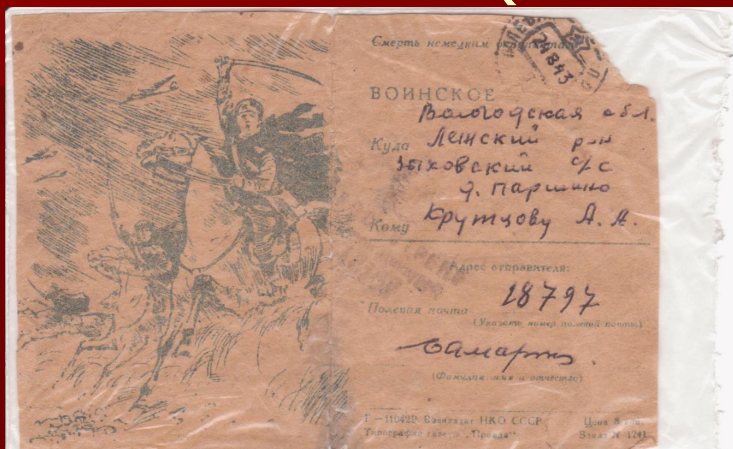 Смерть немецким
24 8 43
ВОИНСКОЕ
Вологодская обл.
Куда Ленский р-н
Зыховский с/с
д. Паршино
Кому Крутцову А. А.
Адрес отправителя:
Полевая почта 18797
(Указать номер полевой почты)
(Фамилия имя и отчество)
Г—119422 Воениздат НКО СССР Цена 5 коп.
Типография газеты „Правда“ Заказ № 1241